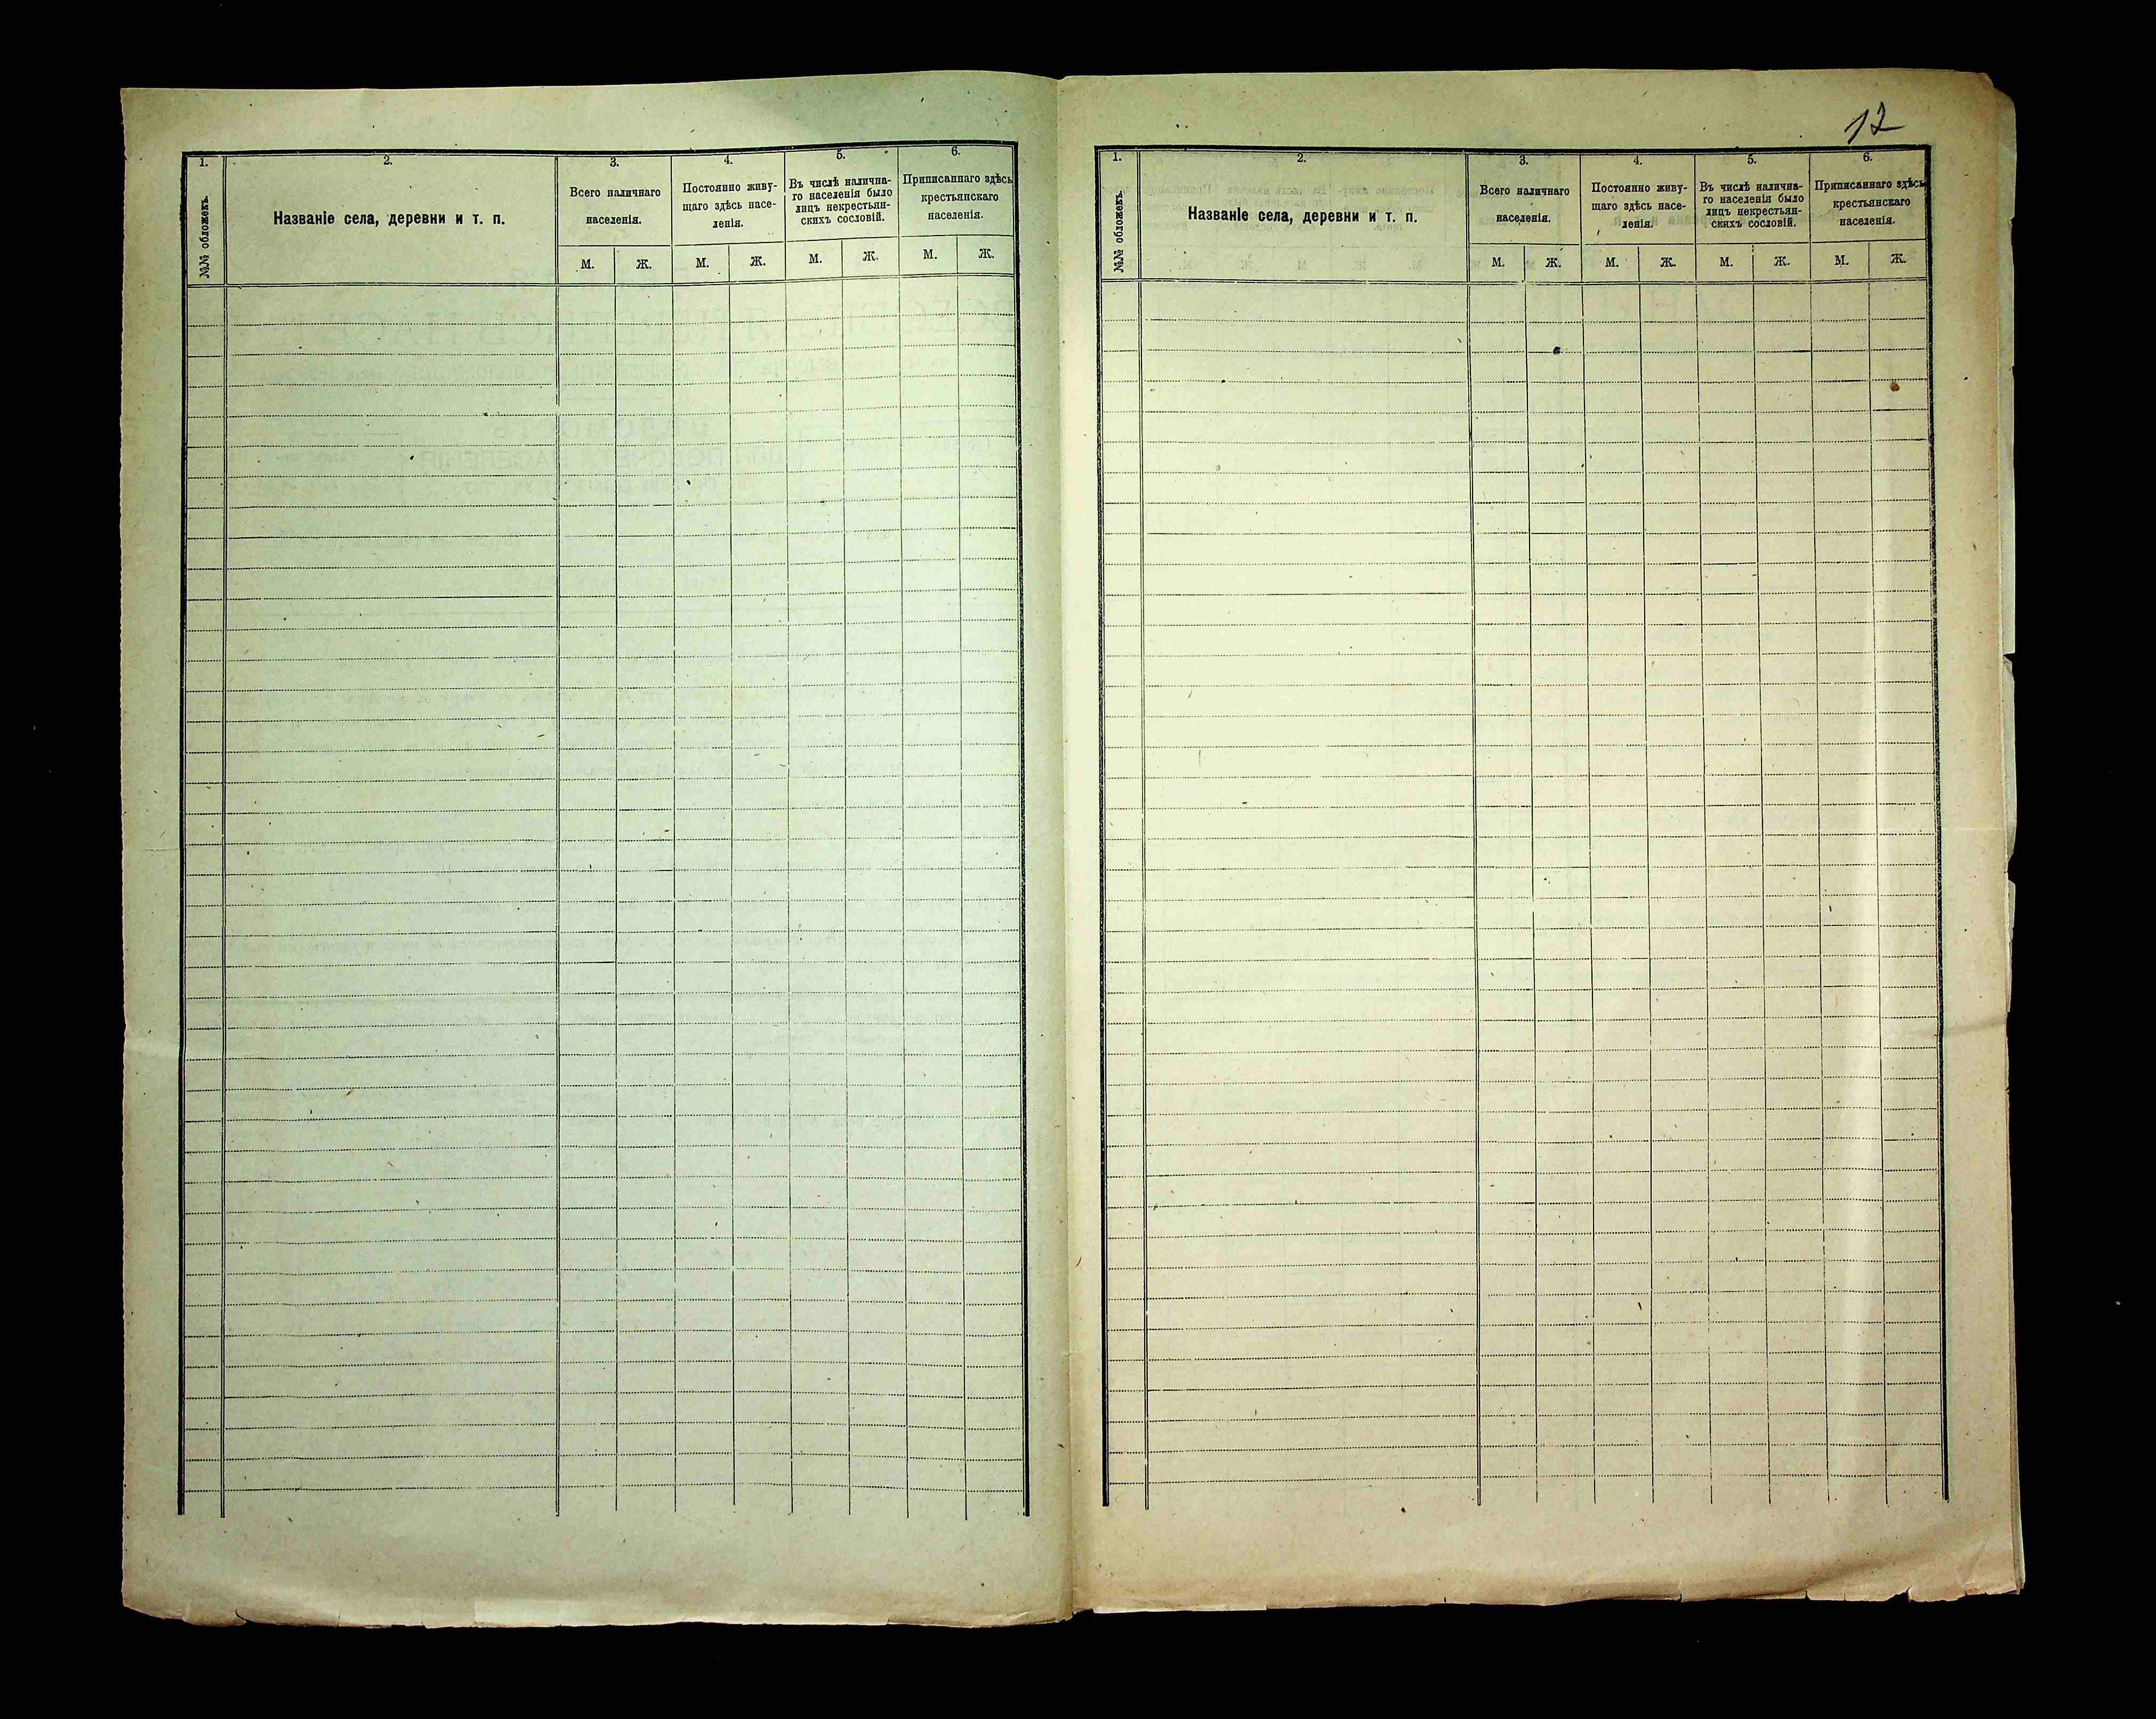 1.
№№ обложекъ.
2.
Названіе села, деревни и т. п.
3.
Всего наличнаго
населенія.
М. Ж.
4.
Постоянно живу-
щаго здѣсь насе-
ленія.
М. Ж.
5.
Въ числѣ налична-
го населенія было
лицъ некрестьян-
скихъ сословій.
М. Ж.
6.
Приписаннаго здѣсь
крестьянскаго
населенія.
М. Ж.
12
1.
№№ обложекъ.
2.
Названіе села, деревни и т. п.
3.
Всего наличнаго
населенія.
М. Ж.
4.
Постоянно живу-
щаго здѣсь насе-
ленія.
М. Ж.
5.
Въ числѣ налична-
го населенія было
лицъ некрестьян-
скихъ сословій.
М. Ж.
6.
Приписаннаго здѣсь
крестьянскаго
населенія.
М. Ж.